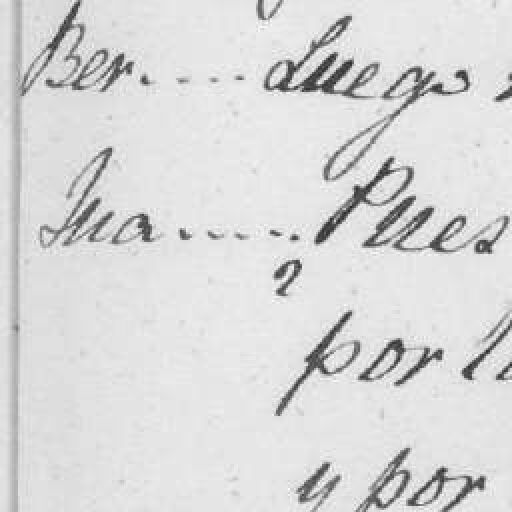 Ber..... Luego
Jua..... Pues
2
por l
y por